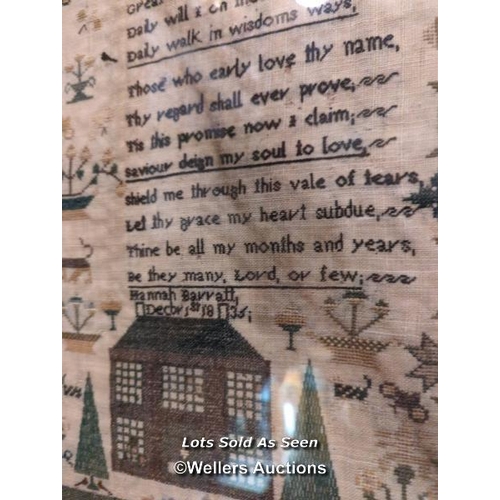 Daily will I on
Daily walk in wisdoms ways,
Those who early love thy name,
Thy regard shall ever prove;
Tis this promise now I claim;
saviour deign my soul to love,
shield me through this vale of tears,
Let thy grace my heart subdue,
Thine be all my months and years,
Be they many, Lord, or few;
Hannah Barratt,
Decbr 1st 1835;
Lots Sold As Seen
©Wellers Auctions